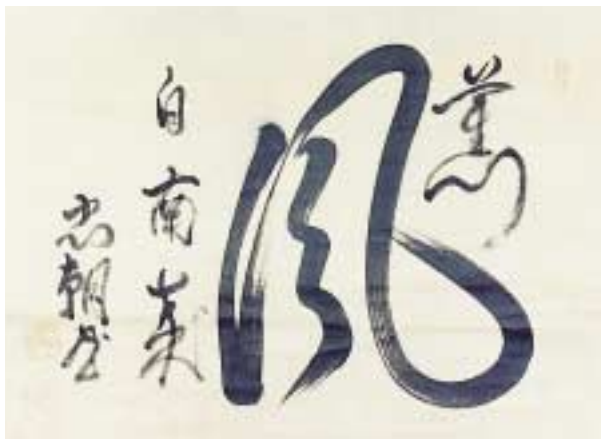 薫
風
自南来
忠朝書